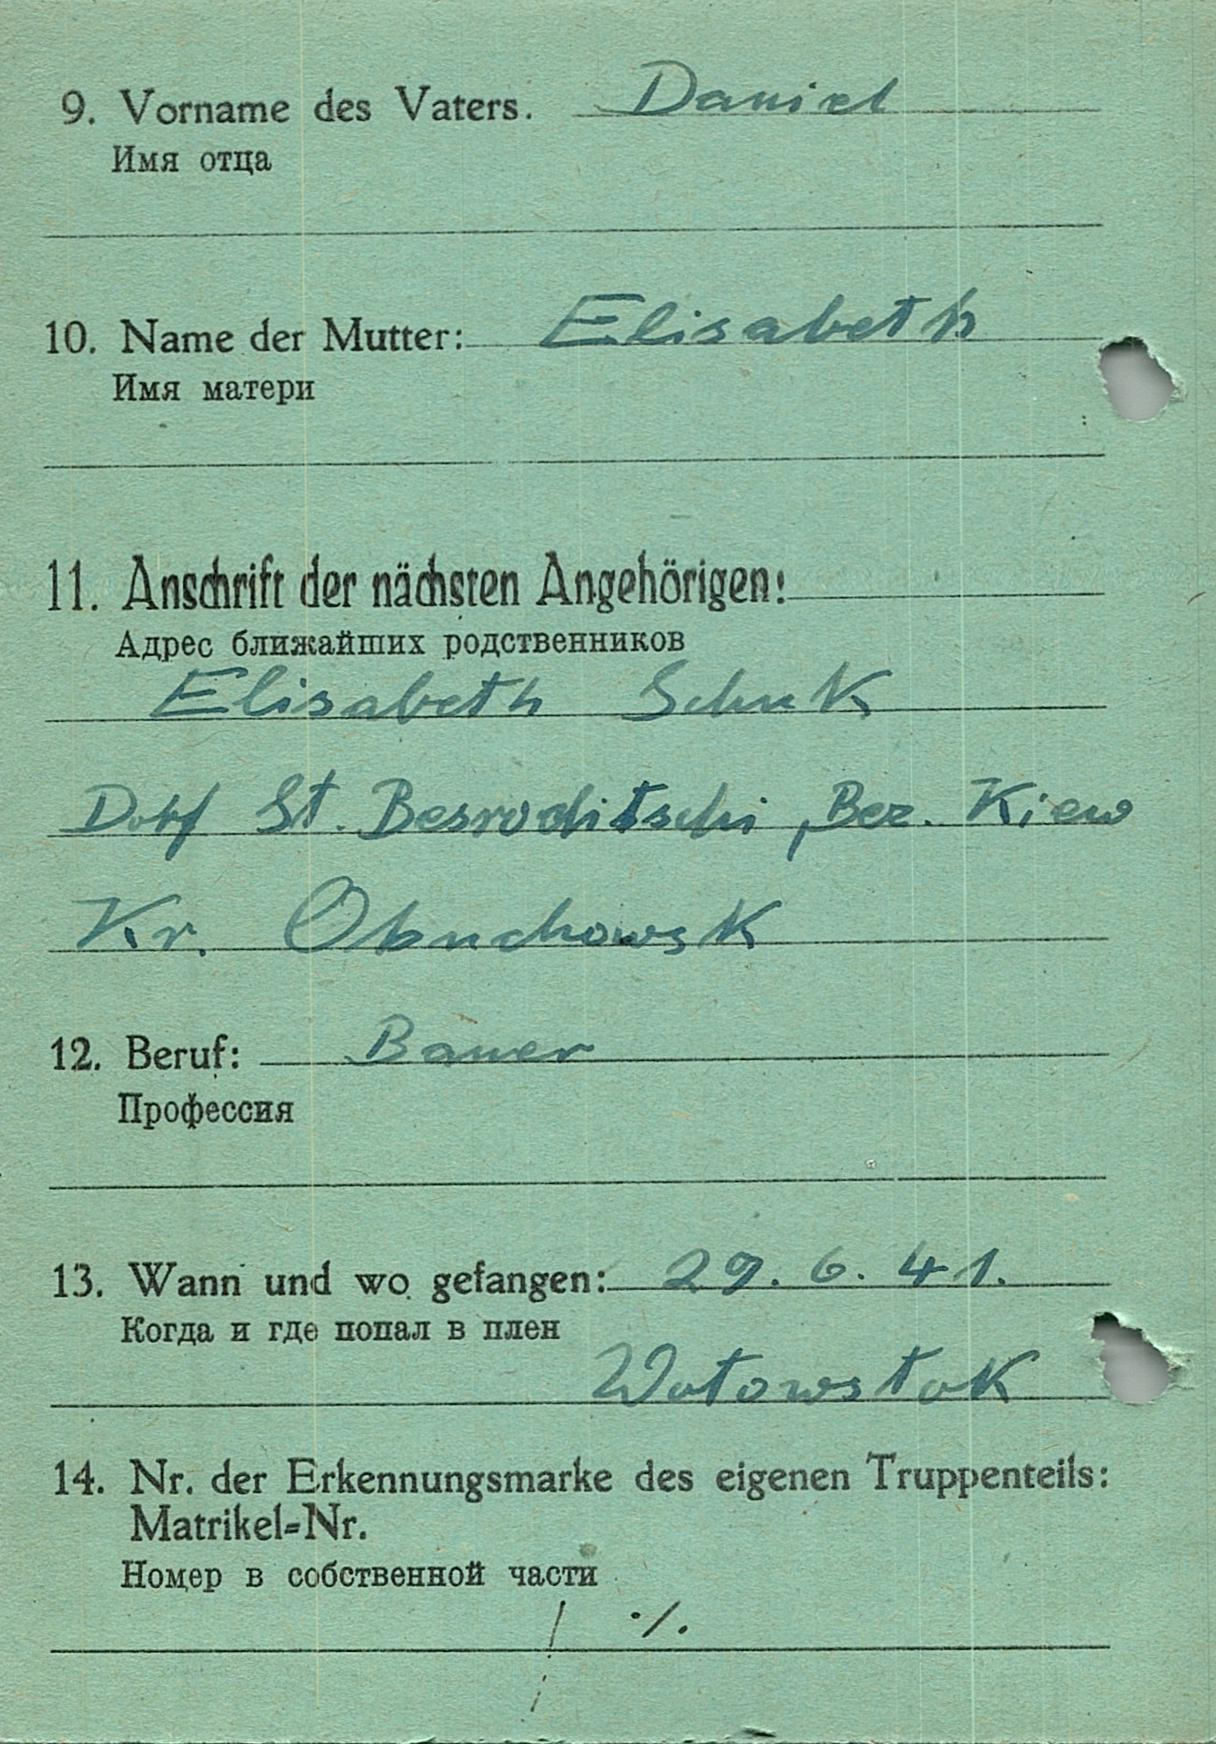 9. Vorname des Vaters. Daniel
Имя отца
10. Name der Mutter: Elisabeth
Имя матери
11. Anschrift der nächsten Angehörigen:
Адрес ближайших родственников
Elisabeth Schuk
Dorf St. Besroditschi, Bez. Kiew
Kr. Obuchowsk
12. Beruf: Bauer
Профессия
13. Wann und wo gefangen: 29. 6. 41.
Когда и где попал в плен
14. Nr. der Erkennungsmarke des eigenen Truppenteils:
Matrikel=Nr.
Номер в собственной части
./.